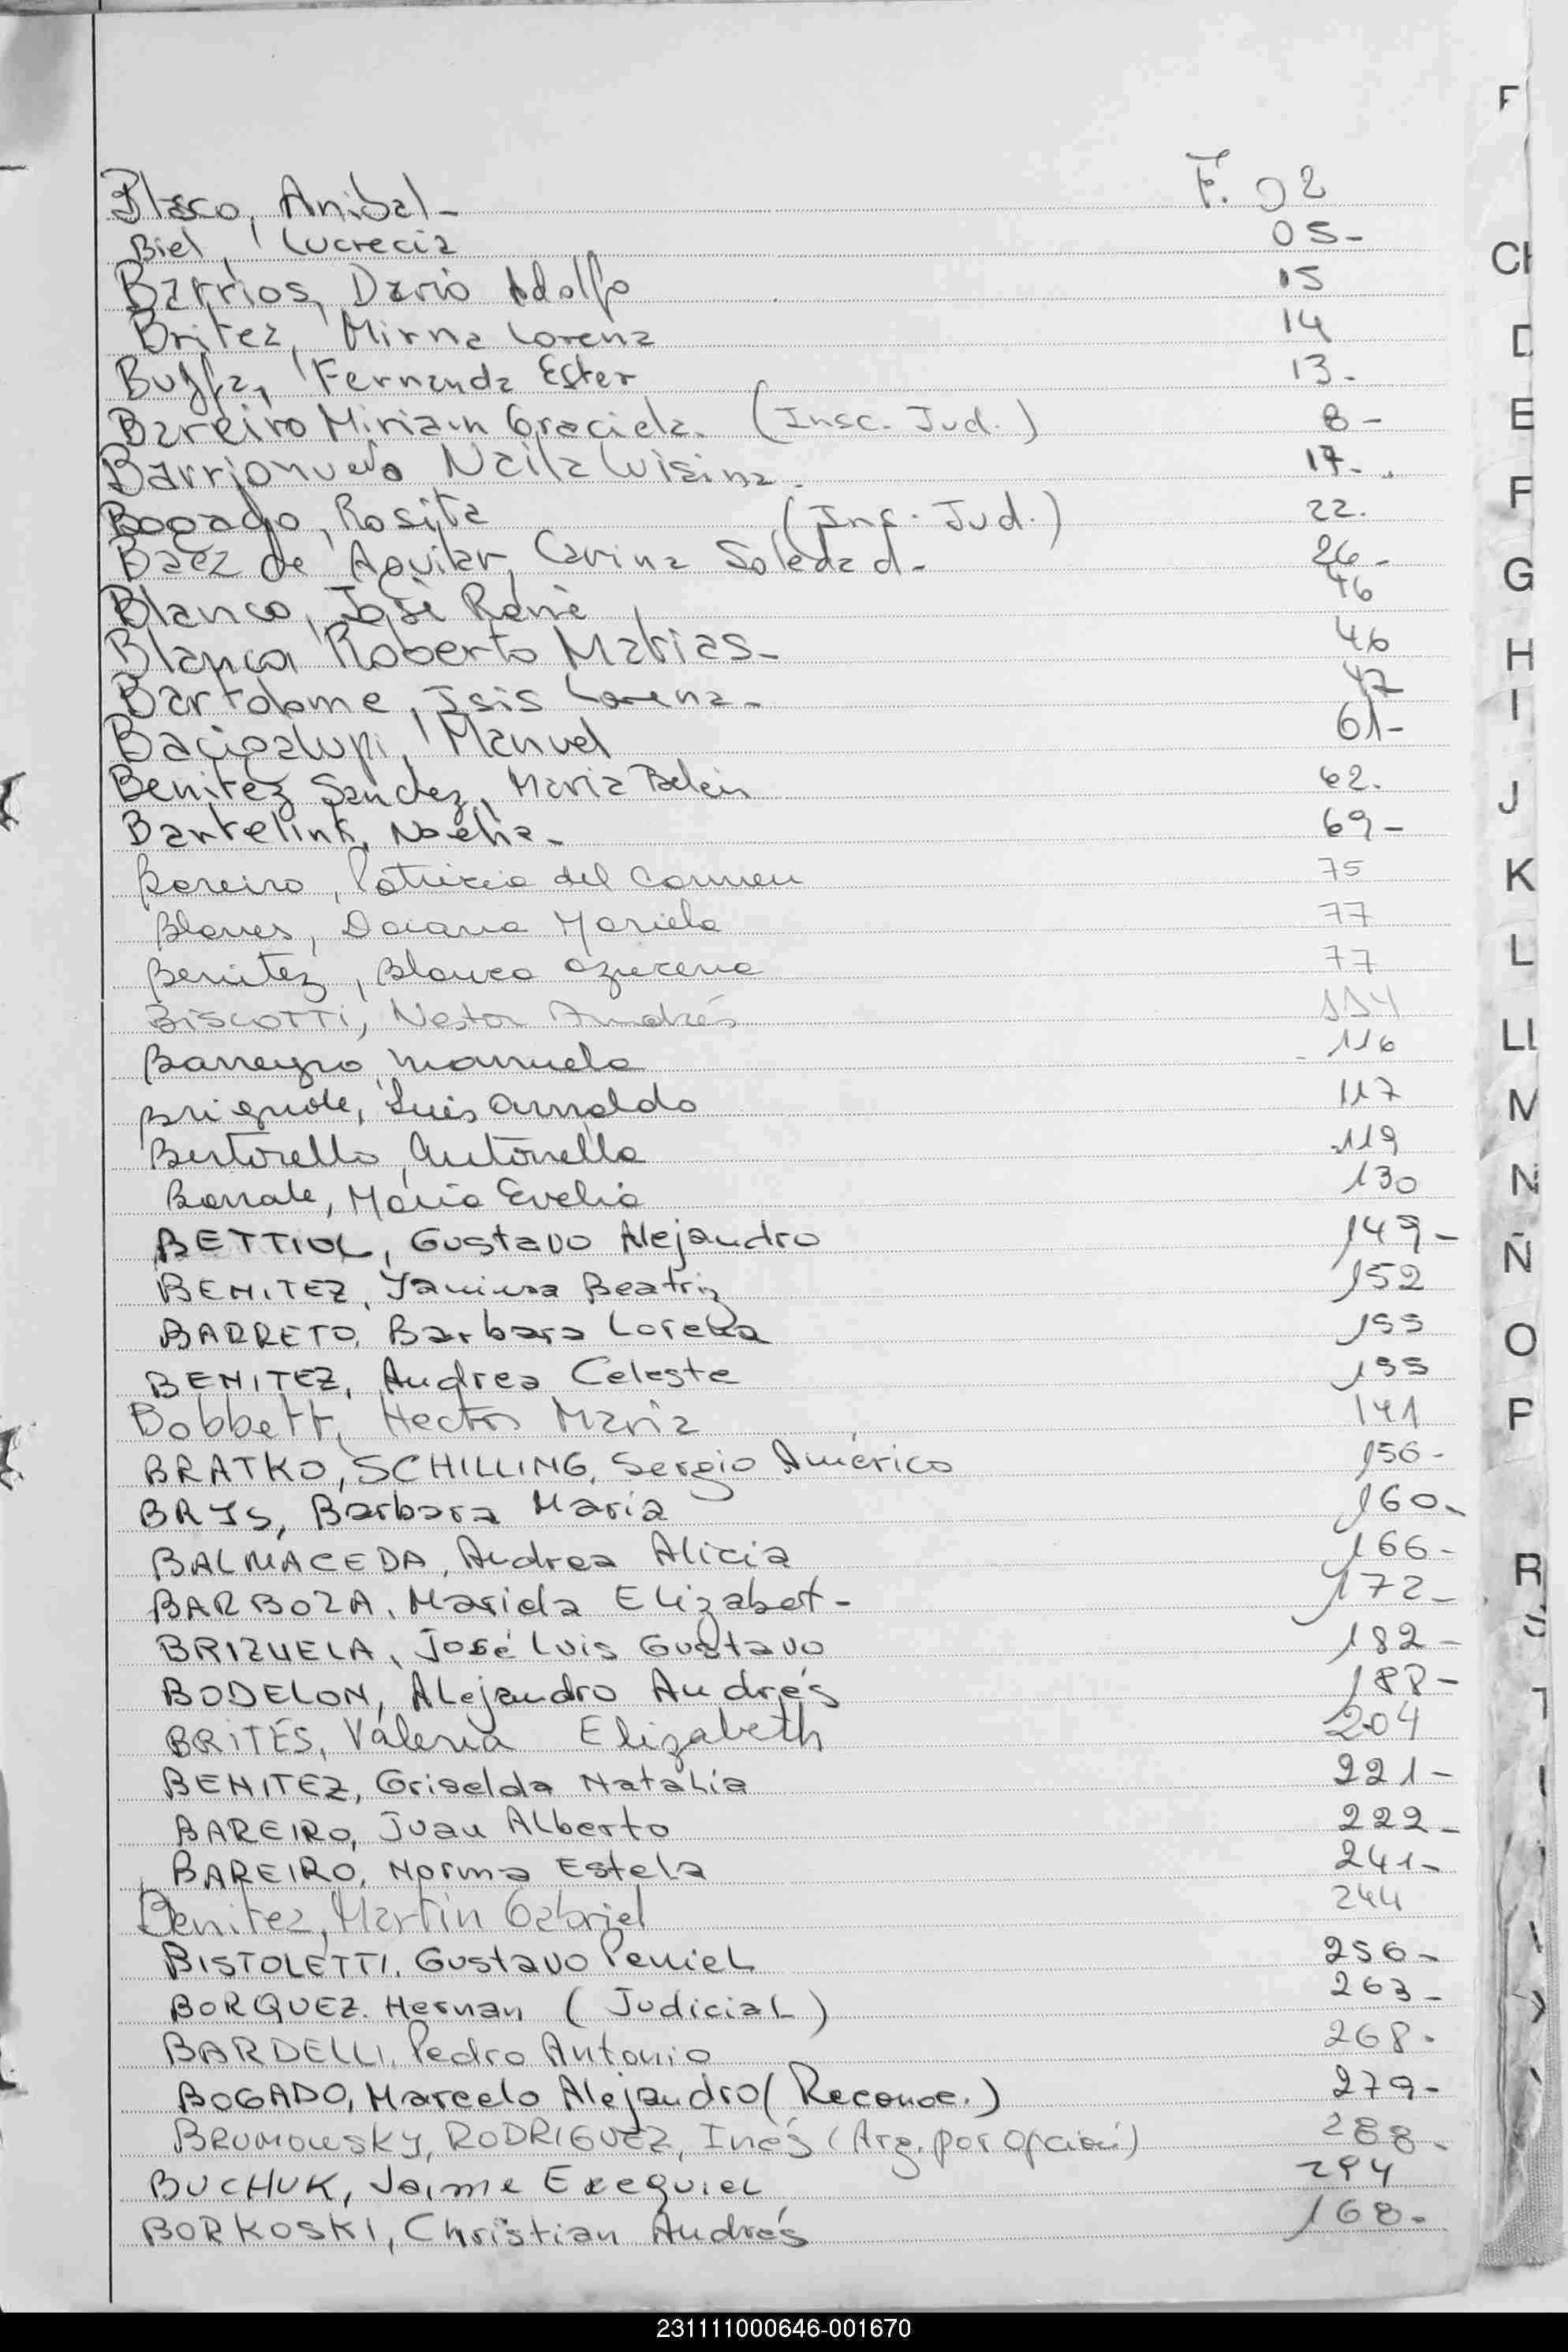 Blasco, Anibal - F. 02
Biel, Lucrecia 05-
Barrios, Dario Adolfo 15
Britez, Mirna Lorena 14
Buffa, Fernanda Ester 13.
Bareiro Miriam Graciela. (Insc. Jud.) 8-
Barrionuevo Naila Luisina. 17-.
Bogado, Rosita (Ins. Jud.) 22.
Baez de Aguilar, Carina Soledad. 26-
Blanco, José René 46
Blanco Roberto Matias- 46
Bartolome, Isis Lorena- 47
Bacigalupi, Manuel 61-
Benitez Sanchez, Maria Belén 62.
Bartelink, Noelia- 69-
Bareiro, Patricia del Carmen 75
Blanes, Daiana Mariela 77
Benitez, Blanca Azucena 77
BISCOTTI, Nestor Andrés 114
Barreyro, Manuela 116
Brignole, Luis Arnaldo 117
Bertorello, Antonella 119
Barrale, María Evelia 130
BETTIOL, Gustavo Alejandro 149-
BENITEZ, Yanina Beatriz 152
BARRETO, Barbara Lorena 155
BENITEZ, Andrea Celeste 155
Bobbett, Hector Maria 141
BRATKO, SCHILLING, Sergio Américo 156-
BRYS, Barbara María 160-
BALMACEDA, Andrea Alicia 166-
BARBOZA, Mariela Elizabet- 172-
BRIZUELA, José Luis Gustavo 182-
BODELON, Alejandro Andrés 188-
BRITES, Valeria Elizabeth 204
BENITEZ, Griselda Natalia 221-
BAREIRO, Juan Alberto 222-
BAREIRO, Norma Estela 241-
Benitez, Martín Gabriel 244
BISTOLETTI, Gustavo Peniel 256-
BORQUEZ. Hernan (Judicial) 263-
BARDELLI, Pedro Antonio 268-
BOGADO, Marcelo Alejandro (Reconoc.) 279-
BRUMOWSKY, RODRIGUEZ, Inés (Arg. por Opción) 288-
BUCHUK, Jaime Exequiel 294
BORKOSKI, Christian Andrés 168-
F
CH
D
E
F
G
H
I
J
K
L
LL
M
N
Ñ
O
P
R
S
T
231111000646-001670